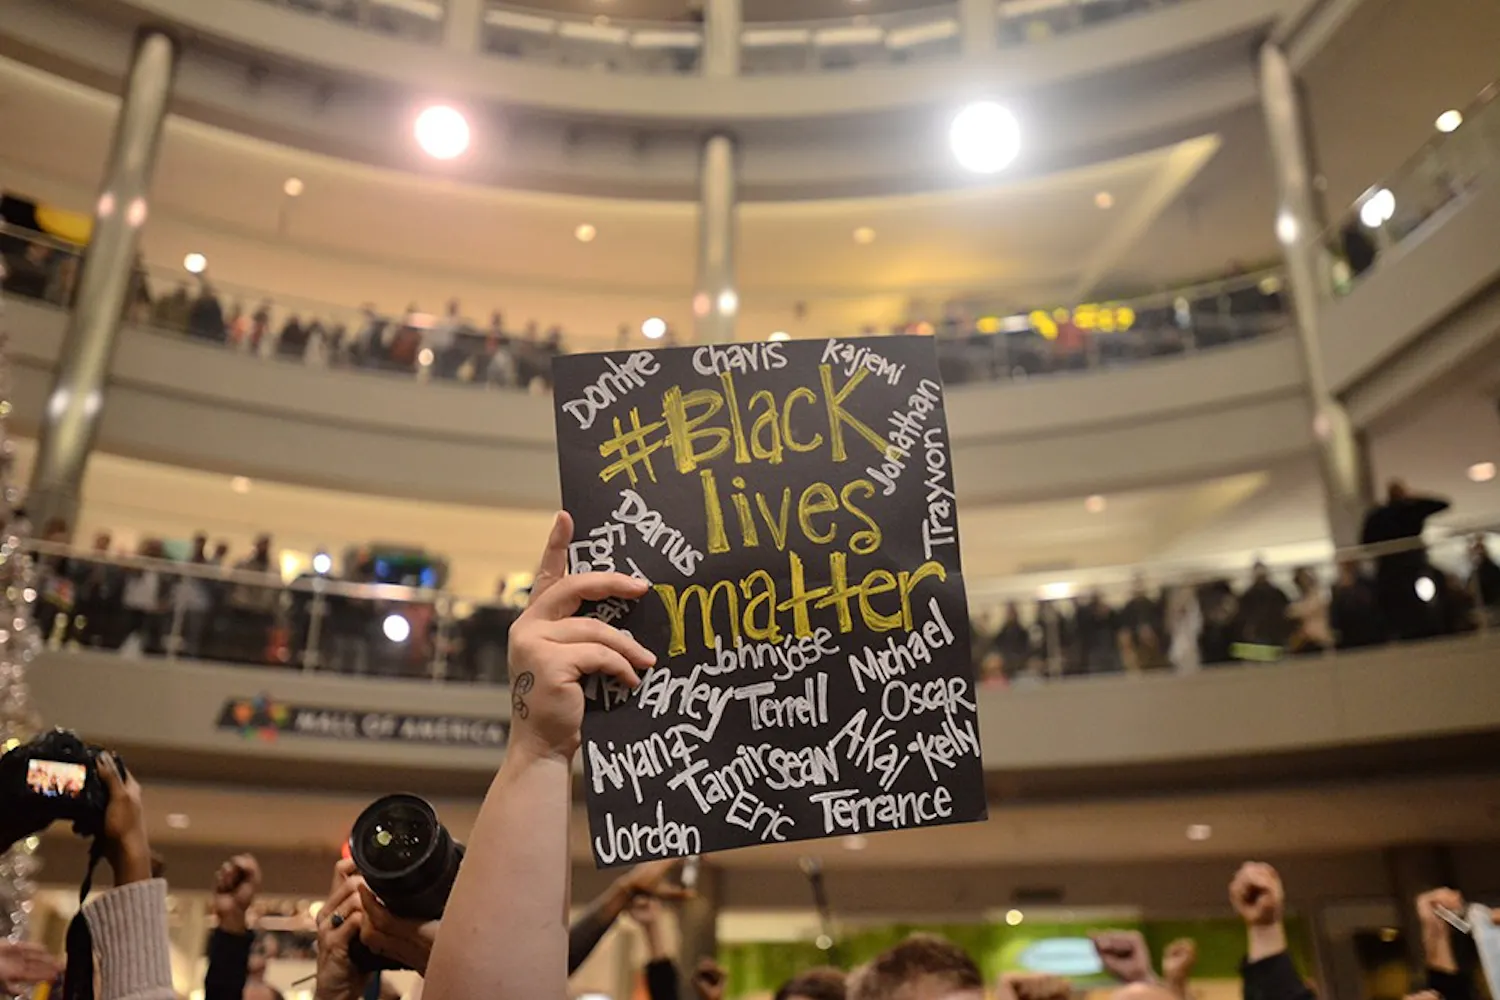 Dontre
Chavis
Kajiemi
#Black
lives
matter
Jonathan
Trayvon
Darius
John
jose
Michael
Oscar
Marley
Terrell
Aiyana
Tamir
sean
AKai
Kelly
Eric
Terrance
Jordan
MALL OF AMERICA